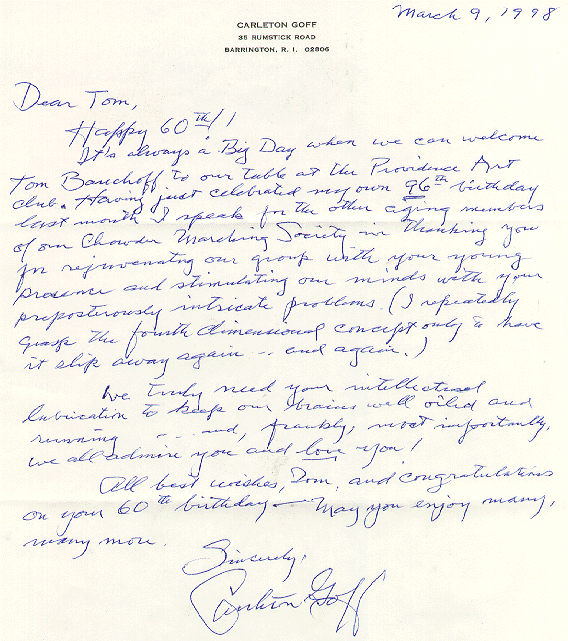 March 9, 1998
CARLETON GOFF
35 RUMSTICK ROAD
BARRINGTON, R. I. 02806
Dear Tom,
Happy 60th!!
It's always a Big Day when we can welcome
Tom Banchoff to our table at the Providence Art
Club. Having just celebrated my own 96th birthday
last month I speak for the other aging members
of our Chowder Marching Society in thanking you
for rejuvenating our group with your young
presence and stimulating our minds with your
preposterously intricate problems. (I repeatedly
grasp the fourth dimensional concept only to have
it slip away again ... and again.)
We truly need your intellectual
lubrication to keep our brains well oiled and
running ... and, frankly, most importantly,
we all admire you and love you!
All best wishes, Tom, and congratulations
on your 60th birthday — May you enjoy many,
many more.
Sincerely,
Carleton Goff